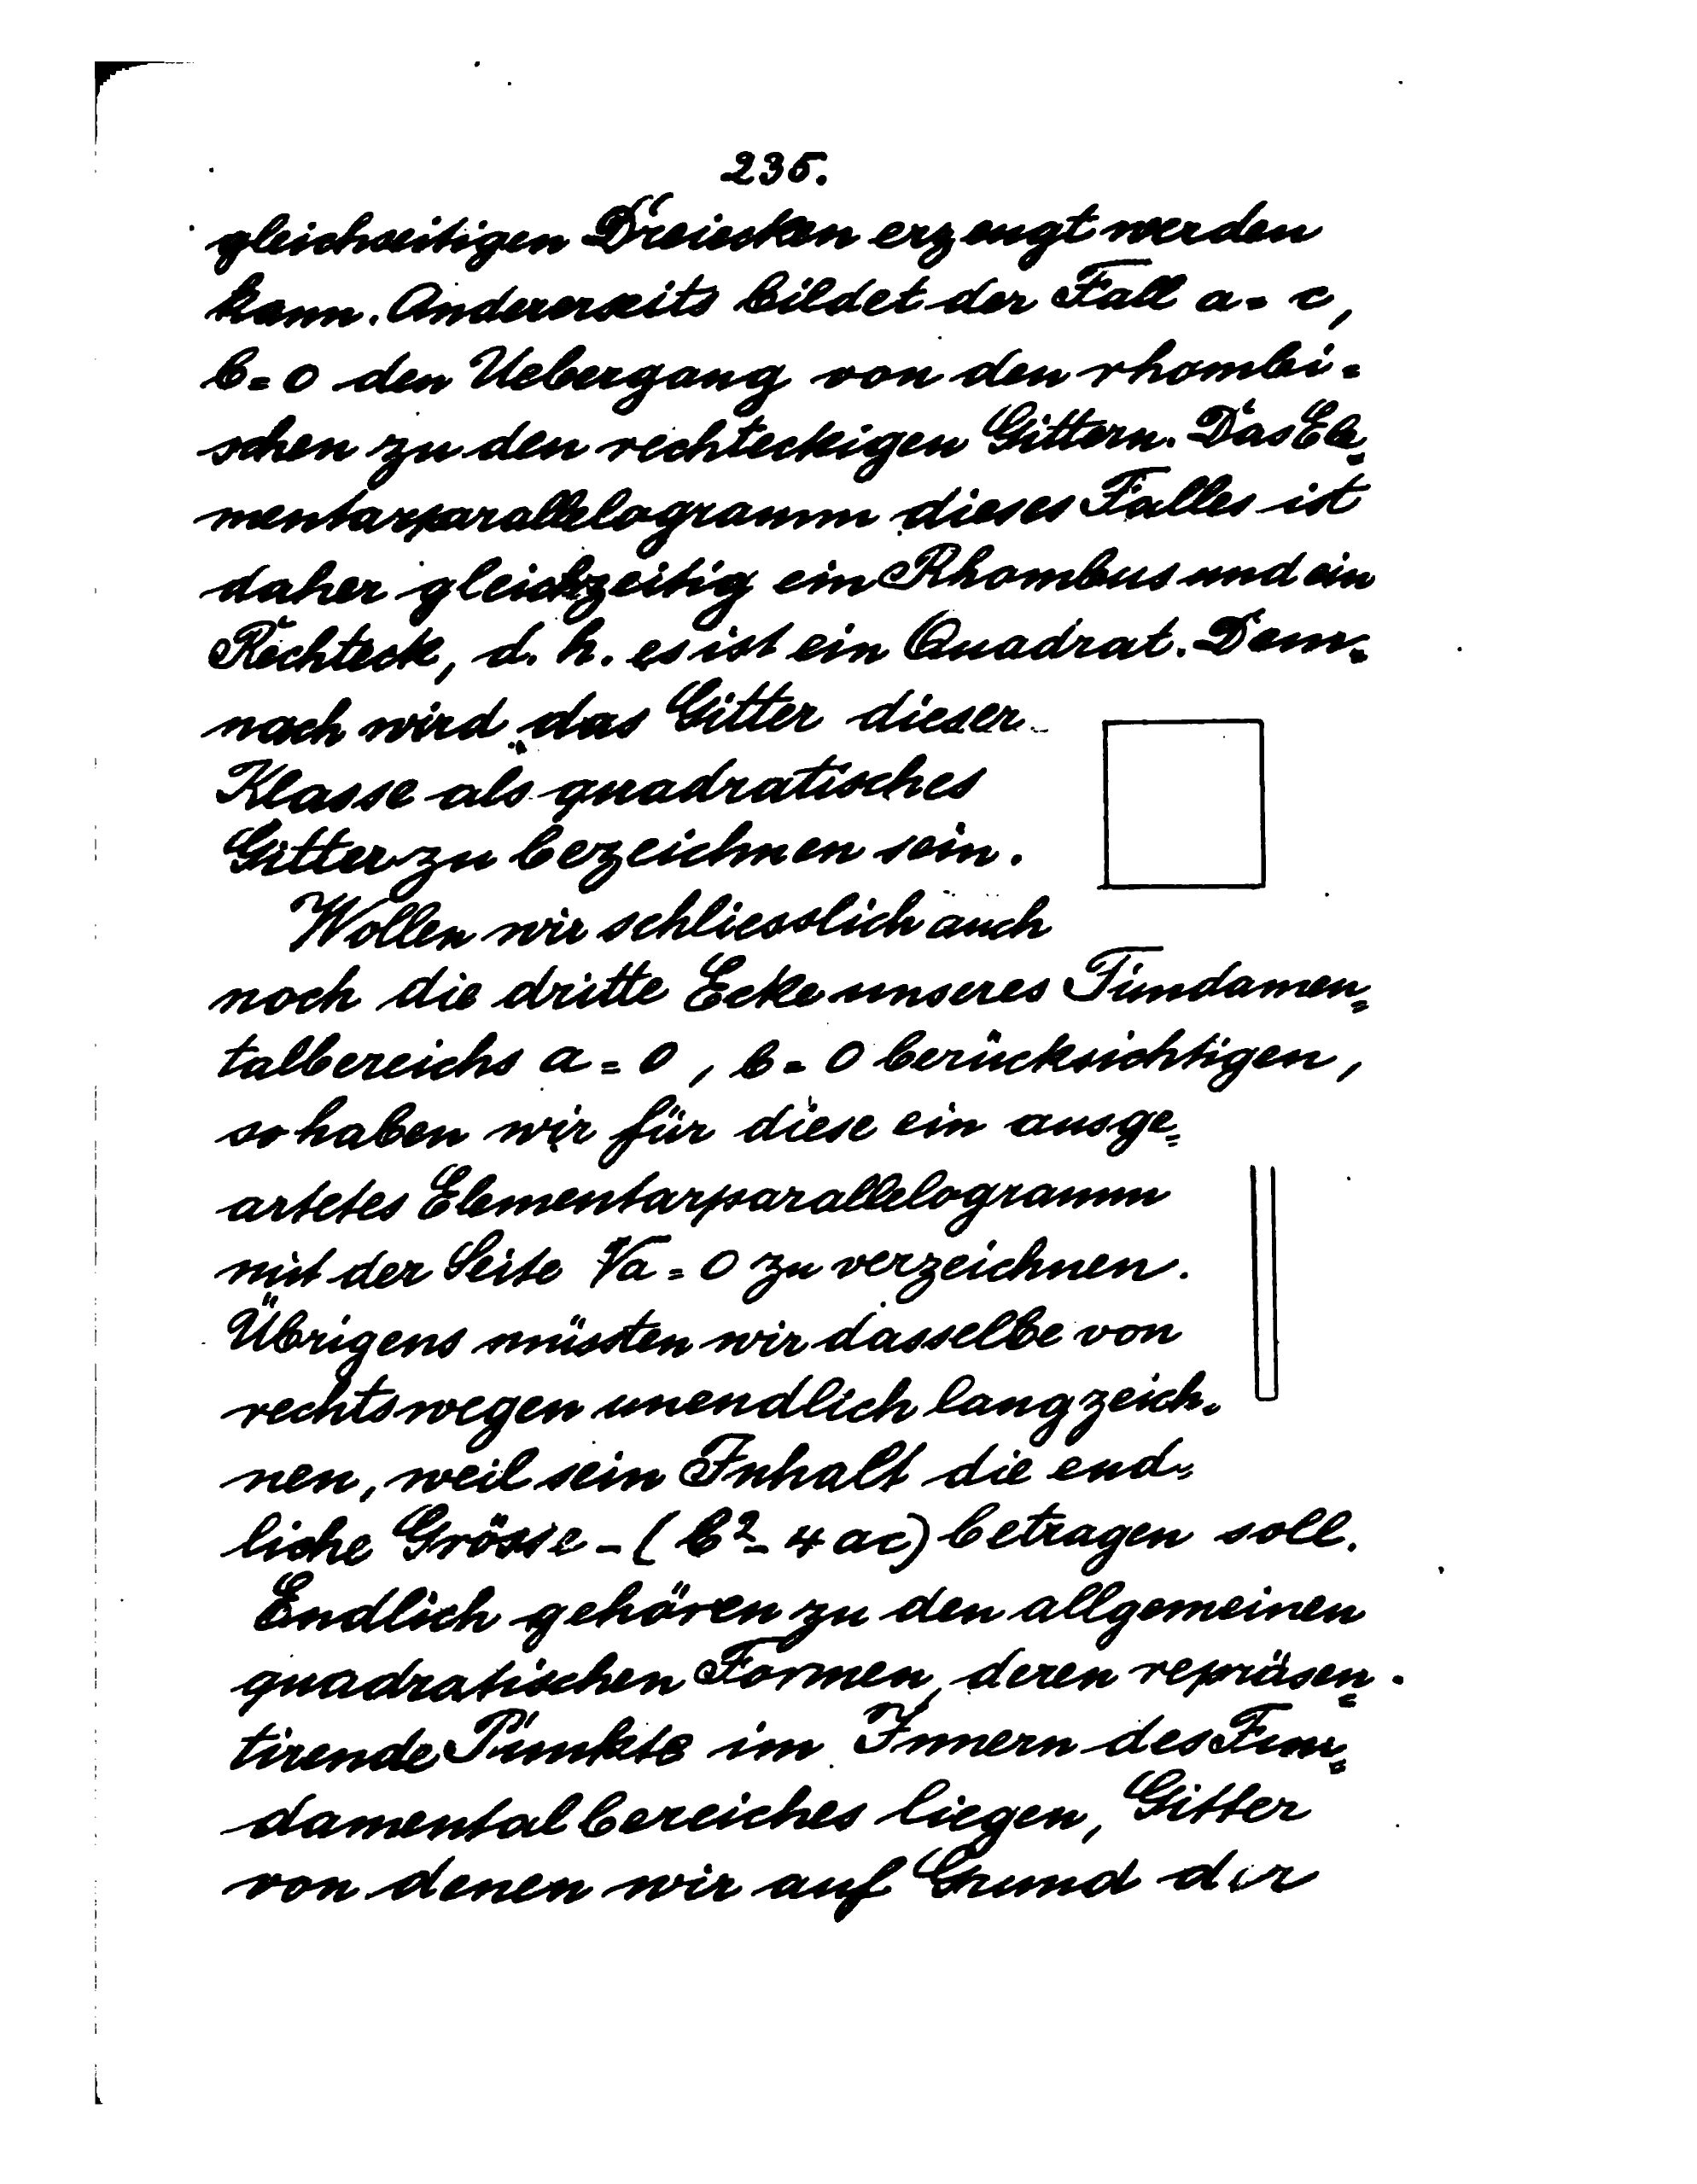 235.
gleichseitigen Dreiecken erzeugt werden
kann. Andererseits bildet der Fall a = c,
b = 0 den Uebergang von den rhombi=
schen zu den rechteckigen Gittern. Das Ele=
mentarparallelogramm dieses Falles ist
daher gleichzeitig ein Rhombus und ein
Rechteck, d. h. es ist ein Quadrat. Dem=
nach wird das Gitter dieser
Klasse als quadratisches
Gitter zu bezeichnen sein.
Wollen wir schliesslich auch
noch die dritte Ecke unseres Fundamen=
talbereichs a = 0, b = 0 berücksichtigen,
so haben wir für diese ein ausge=
artetes Elementarparallelogramm
mit der Seite √a = 0 zu verzeichnen.
Übrigens müssten wir dasselbe von
rechtswegen unendlich lang zeich=
nen, weil sein Inhalt die end=
liche Grösse -(b²-4ac) betragen soll.
Endlich gehören zu den allgemeinen
quadratischen Formen, deren repräsen=
tirende Punkte im Innern des Fun=
damentalbereiches liegen, Gitter
von denen wir auf Grund der